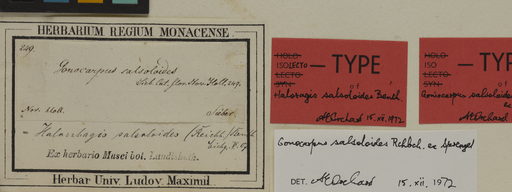 HERBARIUM REGIUM MONACENSE.
249.
Gonocarpus salsoloides
Sieb. Pl. Nov. Holl. 249.
Nov. Holl.
Sieber
= Halorrhagis salsoloides (Reichb.) Benth.
Ex herbario Musei bot. Landishuth.
Herbar Univ. Ludov. Maximil.
HOLO
ISOLECTO — TYPE
LECTO
SYN
of
Haloragis salsoloides Benth.
AEOrchard 15.xii.1972
HOLO
ISO — TYP
LECTO
SYN
Gonocarpus salsoloides
AEOrchard
Gonocarpus salsoloides Rchbch. ex Sprengel
DET. AEOrchard 15. xii. 1972